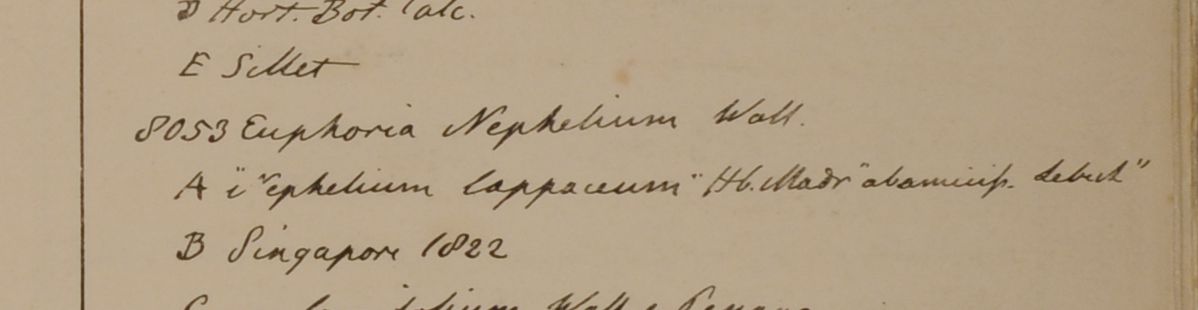 D Hort. Bot. Calc.
E Sillet
8053 Euphoria Nephelium Wall.
A "Nephelium lappaceum" Hb. Madr "ab amicis.
B Singapore 1822
Wall. Penang